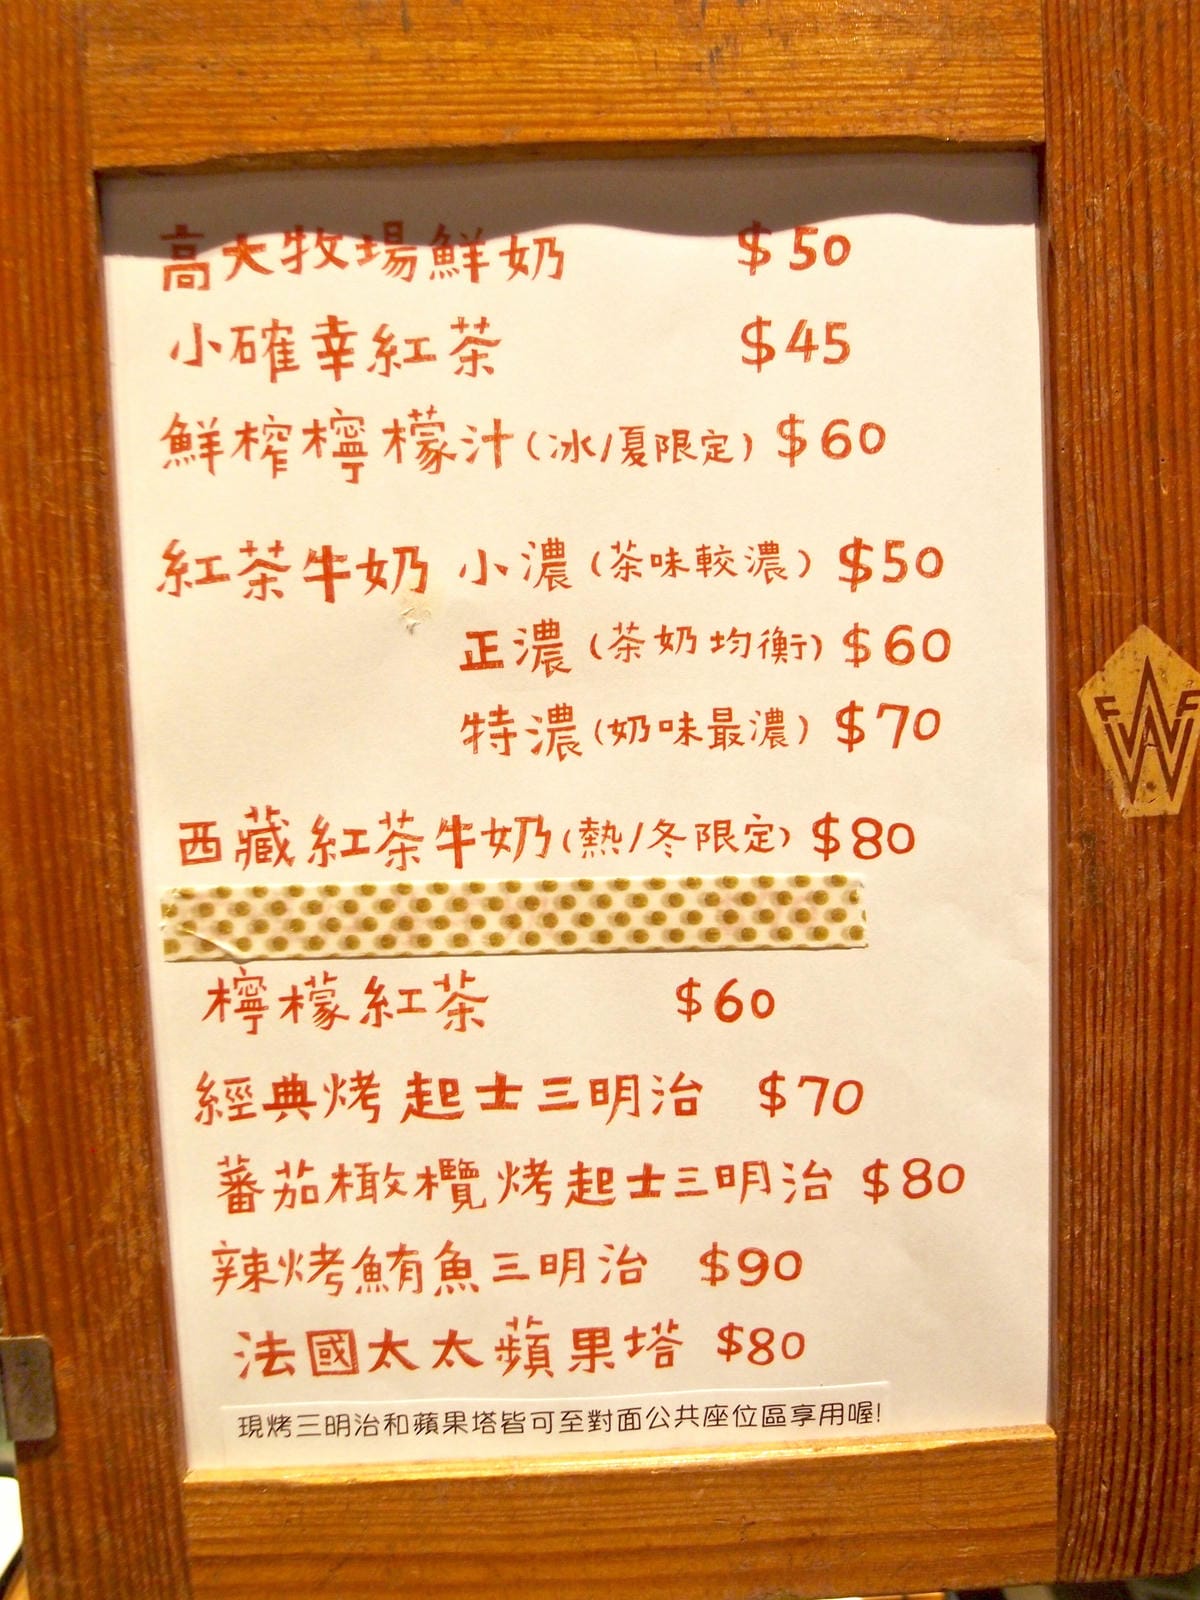 高大牧場鮮奶 $50
小確幸紅茶 $45
鮮榨檸檬汁(冰/夏限定) $60
紅茶牛奶 小濃(茶味較濃) $50
正濃(茶奶均衡) $60
特濃(奶味最濃) $70
西藏紅茶牛奶(熱/冬限定) $80
檸檬紅茶 $60
經典烤起士三明治 $70
蕃茄橄欖烤起士三明治 $80
辣烤鮪魚三明治 $90
法國太太蘋果塔 $80
現烤三明治和蘋果塔皆可至對面公共座位區享用喔!